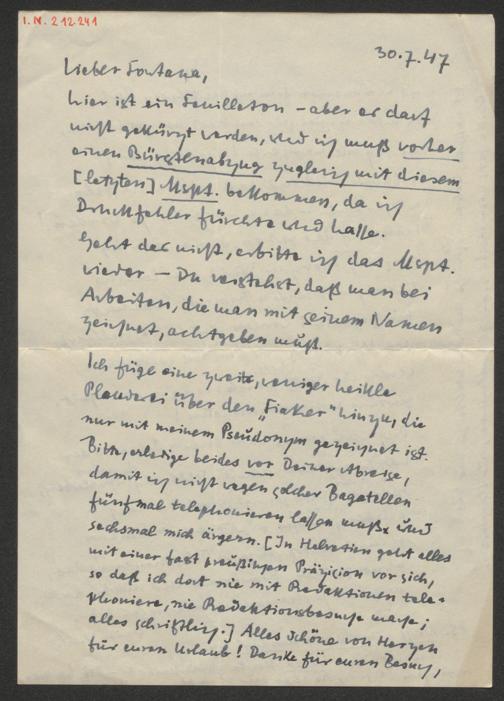 I. N. 212.241
30.7.47
Lieber Fontana,
hier ist ein Feuilleton – aber es darf
nicht gekürzt werden, und ich muß vorher
einen Bürstenabzug zugleich mit diesem
[letzten] Mspt. bekommen, da ich
Druckfehler fürchte und hasse.
Geht das nicht, erbitte ich das Mspt.
wieder – Du verstehst, daß man bei
Arbeiten, die man mit seinem Namen
zeichnet, achtgeben muß.
Ich füge eine zweite, weniger heikle
Plauderei über den "Fiaker" hinzu, die
nur mit meinem Pseudonym gezeichnet ist.
Bitte, erledige beides vor Deiner Abreise,
damit ich nicht wegen solcher Bagatellen
fünfmal telephonieren lassen muß und
sechsmal mich ärgern. [In Helvetien geht alles
mit einer fast preußischen Präzision vor sich,
so daß ich dort nie mit Redaktionen tele-
phoniere, nie Redaktionsbesuche mache;
alles schriftlich.] Alles Schöne von Herzen
für euren Urlaub! Danke für euren Besuch,